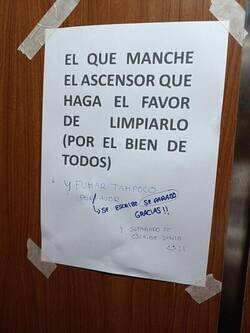 EL QUE MANCHE
EL ASCENSOR QUE
HAGA EL FAVOR
DE LIMPIARLO
(POR EL BIEN DE
TODOS)
Y FUMAR TAMPOCO
POR/FAVOR
↳ SE ESCRIBE SEPARADO
GRACIAS!!
Y SEPARADO SE
ESCRIBE JUNTO